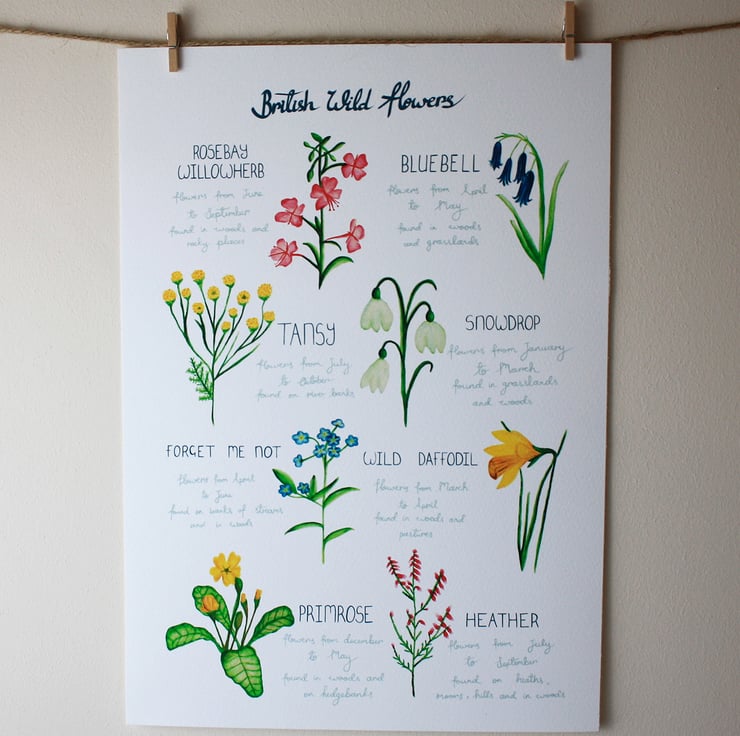 British Wild flowers
ROSEBAY
WILLOWHERB
flowers from June
to September
found in woods and
rocky places
BLUEBELL
flowers from April
to May
found in woods
and grasslands
TANSY
flowers from July
to October
found on river banks
SNOWDROP
flowers from January
to March
found in grasslands
and woods
FORGET ME NOT
flowers from April
to June
found on banks of streams
and in woods
WILD DAFFODIL
flowers from March
to April
found in woods and
pastures
PRIMROSE
flowers from december
to May
found in woods and
on hedgebanks
HEATHER
flowers from July
to September
found on heaths,
moors, hills and in woods